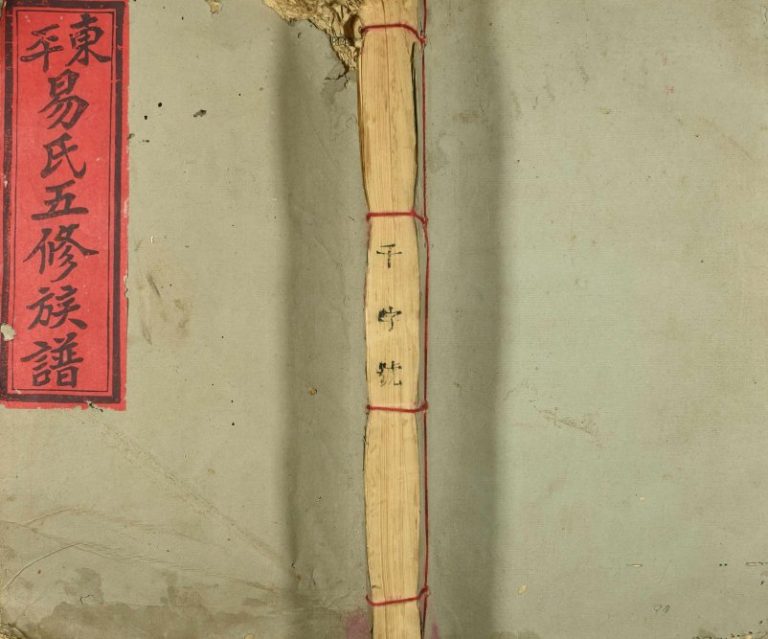 東平
易氏五修族譜
千字號